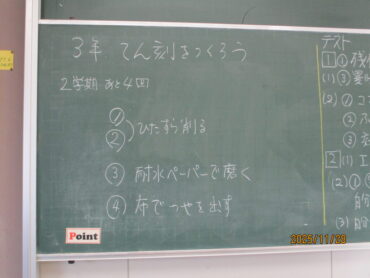 3年 てん刻をつくろう
2学期 あと4回
①
②
ひたすら削る
③ 耐水ペーパーで磨く
④ 布でつやを出す
Point
テスト
1 ①
(1) ③
(2) ① コ
②
③
2 (1) エ
(2) ①
自
(3) 自
2025/11/20